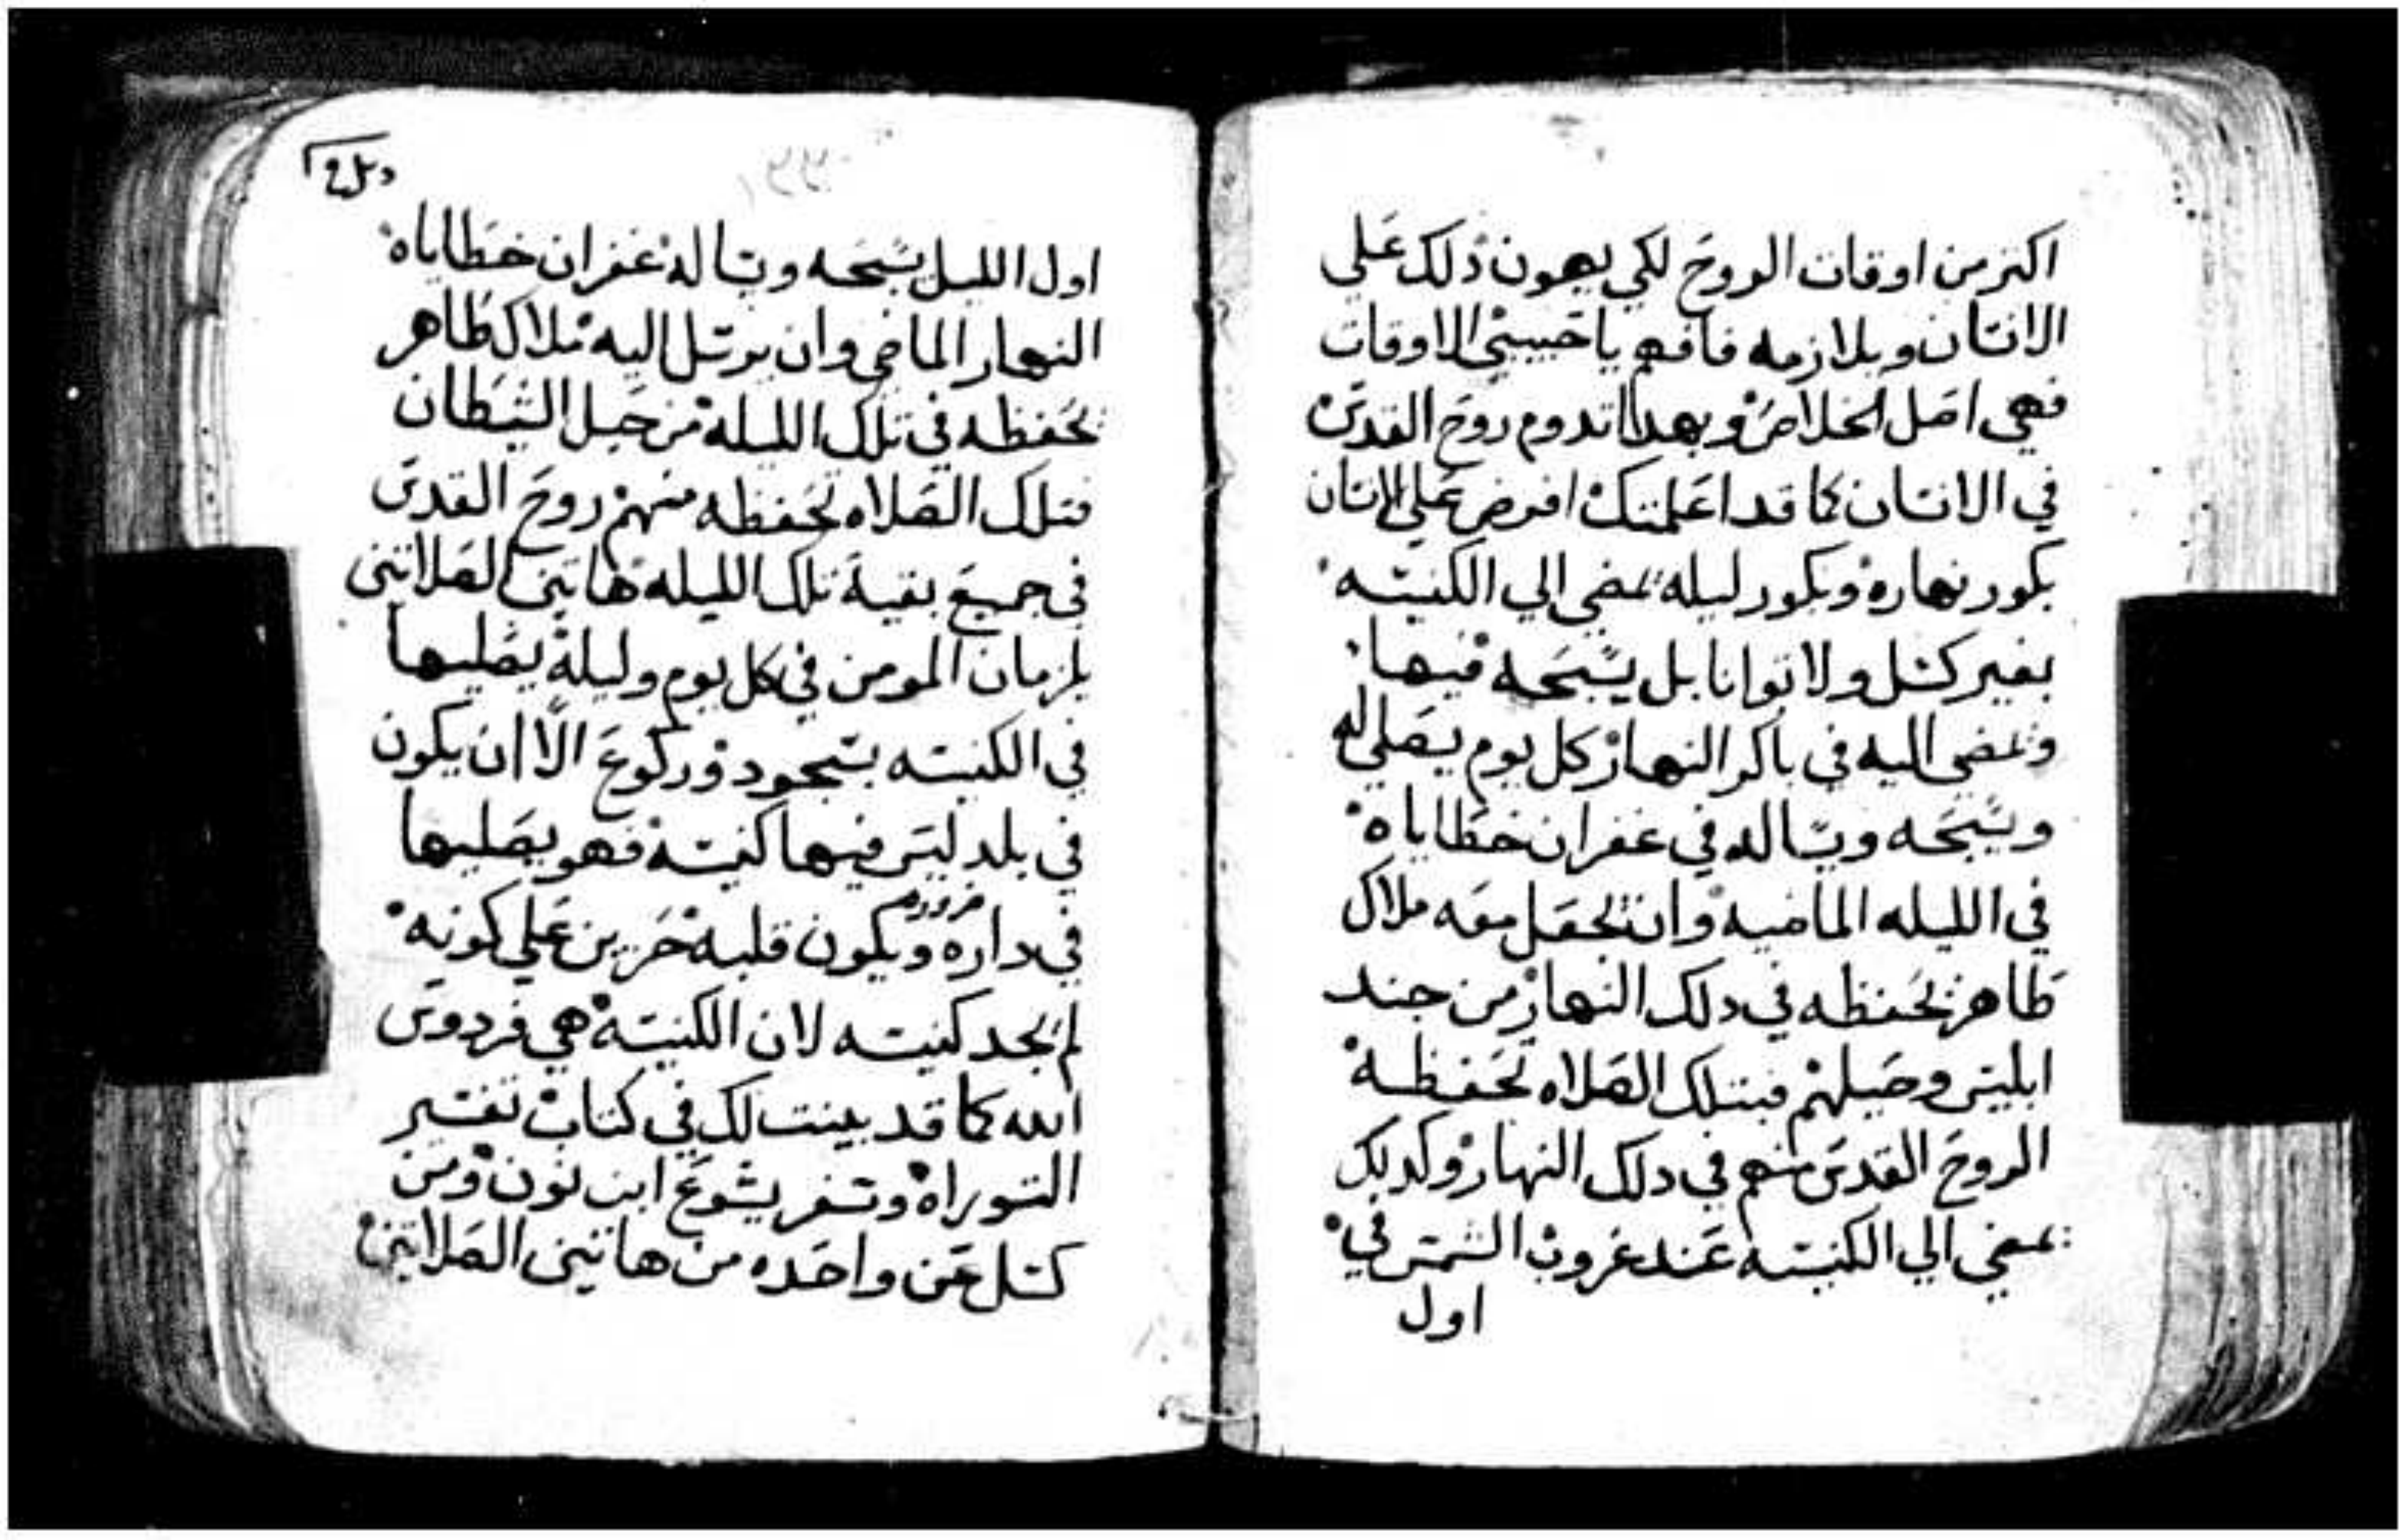 اكتر من اوقات الروح لكي يهون دلك علي
الانسان ويلازمه فافهم يا حبيبي الاوقات
فهي اصل الخلاص وبهدا تدوم روح القدس
في الانسان كما قد اعلمتك افرض علي الانسان
بكور نهاره وبكور ليله يمضي الي الكنيسه
بغير كسل ولا توانا بل يسبحه فيها
ويمضي اليه في باكر النهار كل يوم يصلي له
ويسبحه ويساله في غفران خطاياه
في الليله الماضيه وان يجعل معه ملاك
طاهر يحفظه في دلك النهار من جند
ابليس وحيلهم فبتلك الصلاه تحفظه
الروح القدس منهم في دلك النهار وكدلك
يمضي الي الكنيسه عند غروب الشمس في
اول
اول الليل يسبحه ويساله غفران خطاياه
النهار الماضي وان يرسل اليه ملاك طاهر
يحفظه في تلك الليله من حيل الشيطان
فتلك الصلاه تحفظه منهم روح القدس
في جميع بقية تلك الليله هاتين الصلاتين
يلزمان المومن في كل يوم وليله يصليها
في الكنيسه بسجود وركوع الا ان يكون
في بلد ليس فيها كنيسه فهو يصليها
في داره ويكون قلبه حزين علي كونه
لم يجد كنيسه لان الكنيسه هي فردوس
الله كما قد بينت لك في كتاب تفسير
التوراه وسفر يشوع ابن نون ومن
كسل عن واحده من هاتين الصلاتين